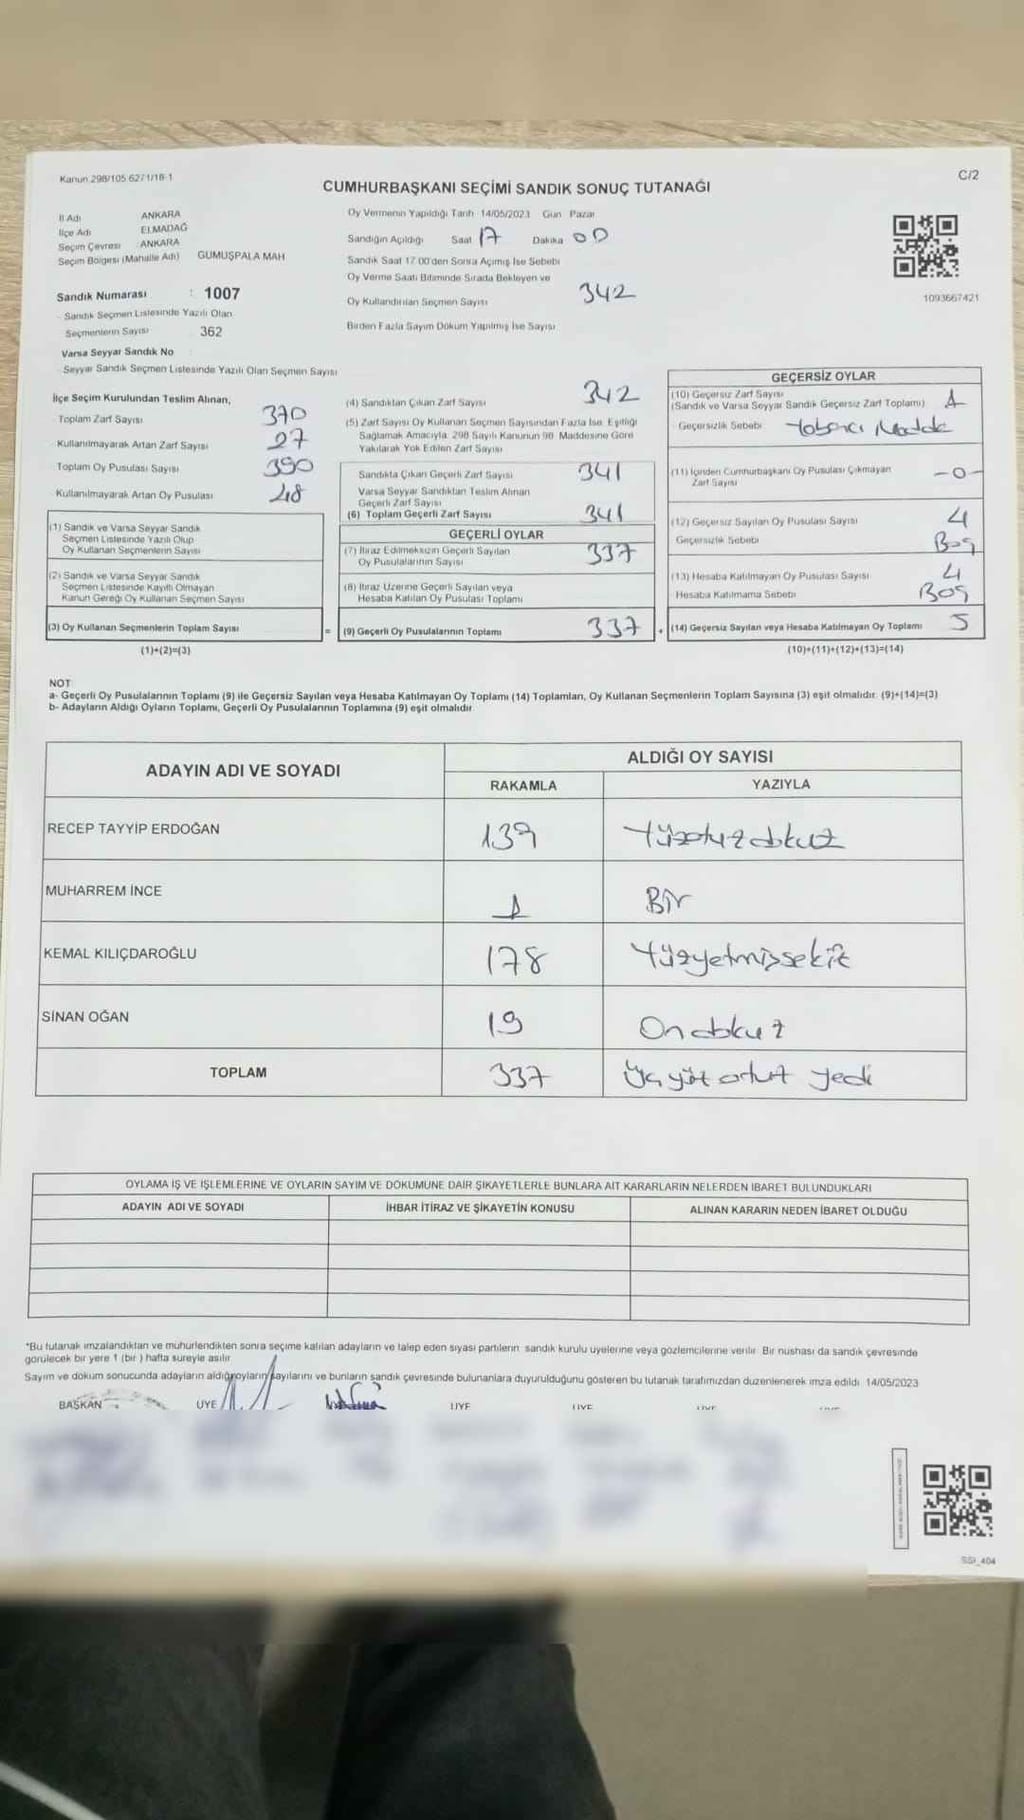 Kanun 298/105 627/1/18-1
C/2
CUMHURBAŞKANI SEÇİMİ SANDIK SONUÇ TUTANAĞI
İl Adı ANKARA
İlçe Adı ELMADAĞ
Seçim Çevresi ANKARA
Seçim Bölgesi (Mahalle Adı) GÜMÜŞPALA MAH
Sandık Numarası : 1007
- Sandık Seçmen Listesinde Yazılı Olan
Seçmenlerin Sayısı 362
Varsa Seyyar Sandık No
- Seyyar Sandık Seçmen Listesinde Yazılı Olan Seçmen Sayısı
Oy Vermenin Yapıldığı Tarih 14/05/2023 Gün Pazar
Sandığın Açıldığı Saat 17 Dakika 00
Sandık Saat 17.00'den Sonra Açılmış İse Sebebi
Oy Verme Saati Bitiminde Sırada Bekleyen ve
Oy Kullandırılan Seçmen Sayısı 342
Birden Fazla Sayım Döküm Yapılmış İse Sayısı
1093667421
İlçe Seçim Kurulundan Teslim Alınan,
Toplam Zarf Sayısı 370
Kullanılmayarak Artan Zarf Sayısı 27
Toplam Oy Pusulası Sayısı 390
Kullanılmayarak Artan Oy Pusulası 48
(1) Sandık ve Varsa Seyyar Sandık
Seçmen Listesinde Yazılı Olup
Oy Kullanan Seçmenlerin Sayısı
(2) Sandık ve Varsa Seyyar Sandık
Seçmen Listesinde Kayıtlı Olmayan
Kanun Gereği Oy Kullanan Seçmen Sayısı
(3) Oy Kullanan Seçmenlerin Toplam Sayısı
(1)+(2)=(3)
(4) Sandıktan Çıkan Zarf Sayısı 342
(5) Zarf Sayısı Oy Kullanan Seçmen Sayısından Fazla İse, Eşitliği
Sağlamak Amacıyla, 298 Sayılı Kanunun 98. Maddesine Göre
Yakılarak Yok Edilen Zarf Sayısı
Sandıkta Çıkan Geçerli Zarf Sayısı 341
Varsa Seyyar Sandıktan Teslim Alınan
Geçerli Zarf Sayısı
(6) Toplam Geçerli Zarf Sayısı 341
GEÇERLİ OYLAR
(7) İtiraz Edilmeksizin Geçerli Sayılan
Oy Pusulalarının Sayısı 337
(8) İtiraz Üzerine Geçerli Sayılan veya
Hesaba Katılan Oy Pusulası Toplamı
= (9) Geçerli Oy Pusulalarının Toplamı 337 +
GEÇERSİZ OYLAR
(10) Geçersiz Zarf Sayısı
(Sandık ve Varsa Seyyar Sandık Geçersiz Zarf Toplamı) 1
Geçersizlik Sebebi Yabancı Madde
(11) İçinden Cumhurbaşkanı Oy Pusulası Çıkmayan
Zarf Sayısı -0-
(12) Geçersiz Sayılan Oy Pusulası Sayısı 4
Geçersizlik Sebebi Boş
(13) Hesaba Katılmayan Oy Pusulası Sayısı 4
Hesaba Katılmama Sebebi Boş
(14) Geçersiz Sayılan veya Hesaba Katılmayan Oy Toplamı 5
(10)+(11)+(12)+(13)=(14)
NOT
a- Geçerli Oy Pusulalarının Toplamı (9) ile Geçersiz Sayılan veya Hesaba Katılmayan Oy Toplamı (14) Toplamları, Oy Kullanan Seçmenlerin Toplam Sayısına (3) eşit olmalıdır. (9)+(14)=(3)
b- Adayların Aldığı Oyların Toplamı, Geçerli Oy Pusulalarının Toplamına (9) eşit olmalıdır
ADAYIN ADI VE SOYADI ALDIĞI OY SAYISI
RAKAMLA YAZIYLA
RECEP TAYYİP ERDOĞAN 139 Yüzotuzdokuz
MUHARREM İNCE 1 Bir
KEMAL KILIÇDAROĞLU 178 Yüzyetmişsekiz
SİNAN OĞAN 19 Ondokuz
TOPLAM 337 Üçyüz otuz yedi
OYLAMA İŞ VE İŞLEMLERİNE VE OYLARIN SAYIM VE DÖKÜMÜNE DAİR ŞİKAYETLERLE BUNLARA AİT KARARLARIN NELERDEN İBARET BULUNDUKLARI
ADAYIN ADI VE SOYADI İHBAR İTİRAZ VE ŞİKAYETİN KONUSU ALINAN KARARIN NEDEN İBARET OLDUĞU
*Bu tutanak imzalandıktan ve mühürlendikten sonra seçime katılan adayların ve talep eden siyasi partilerin sandık kurulu üyelerine veya gözlemcilerine verilir. Bir nüshası da sandık çevresinde
görülecek bir yere 1 (bir ) hafta süreyle asılır.
Sayım ve döküm sonucunda adayların aldığı oyların sayılarını ve bunların sandık çevresinde bulunanlara duyurulduğunu gösteren bu tutanak tarafımızdan düzenlenerek imza edildi. 14/05/2023
BAŞKAN ÜYE ÜYE ÜYE
SSI_404